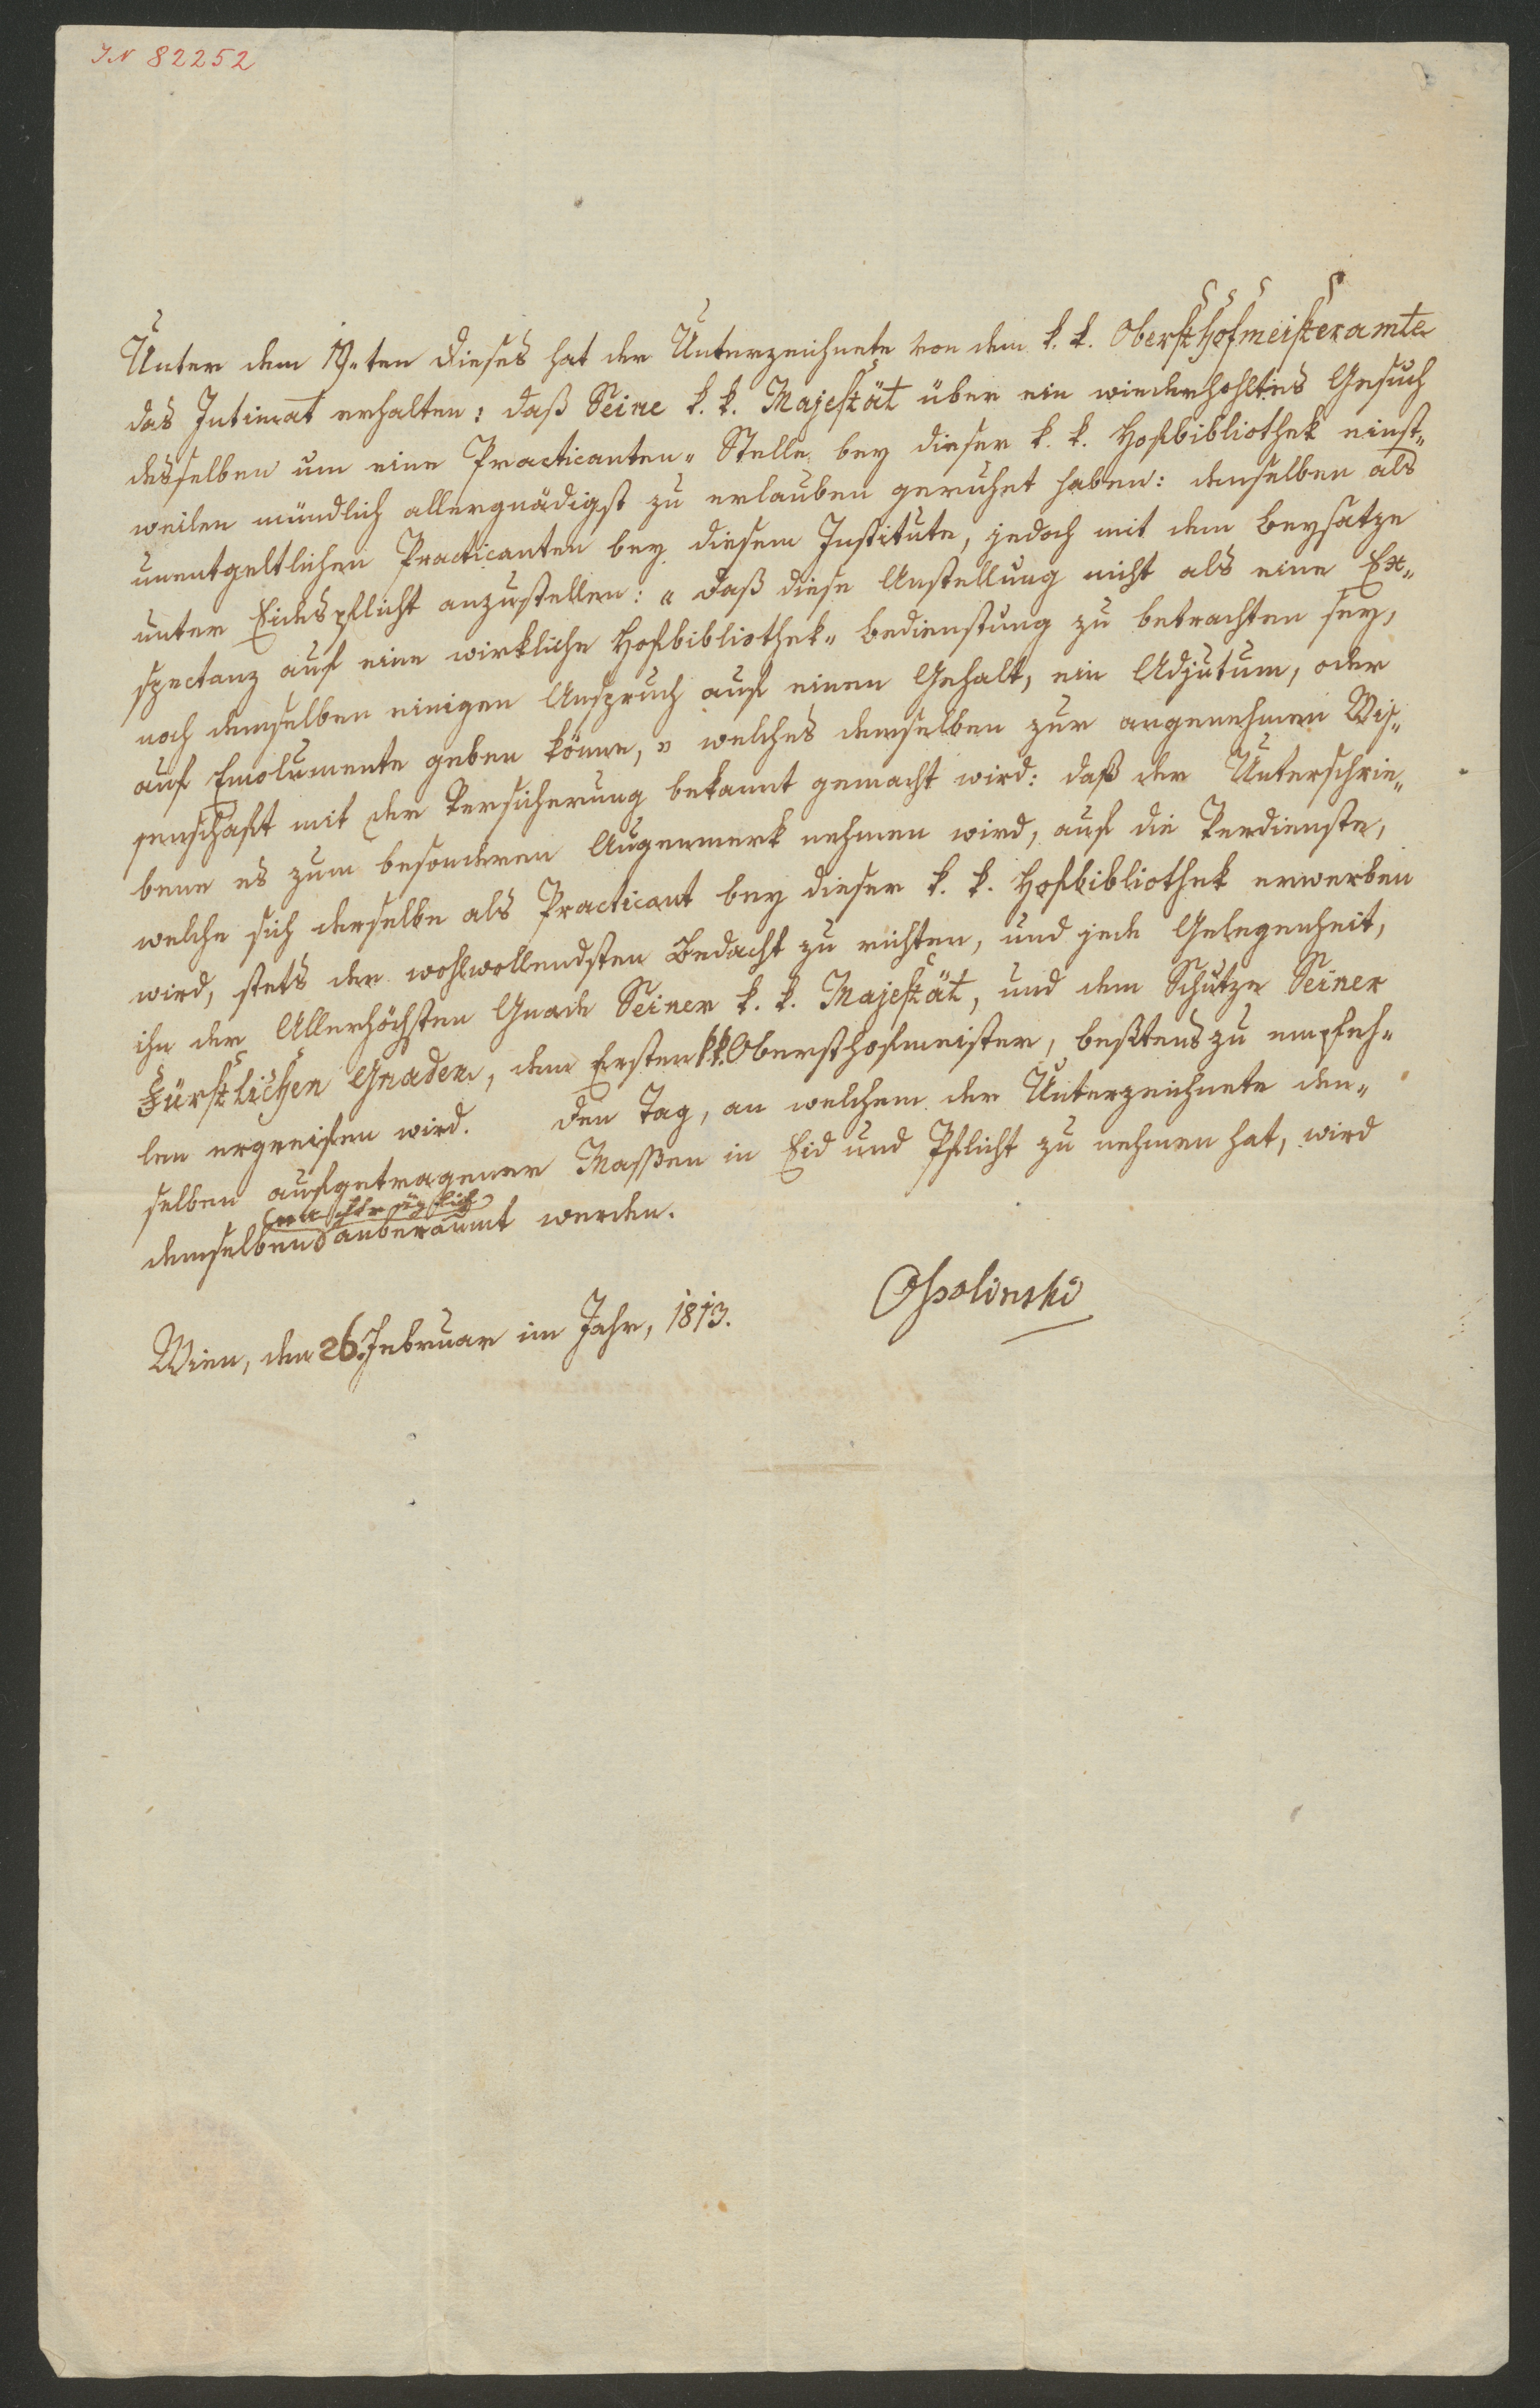 IN 82252
Unter dem 19.ten dieses hat der Unterzeichnete von dem k. k. Obersthofmeisteramte
das Intimat erhalten: daß Seine k. k. Majestät über ein wiederhohltes Gesuch
desselben um eine Practicanten„ Stelle bey dieser k. k. Hofbibliothek einst„
weilen mündlich allergnädigst zu erlauben geruhet haben: denselben als
unentgeltlichen Practicanten bey diesem Institute, jedoch mit dem Beysatze
unter Eidespflicht anzustellen: „ daß diese Anstellung nicht als eine Ex„
spectanz auf eine wirkliche Hofbibliothek„ Bedienstung zu betrachten sey,
noch demselben einigen Anspruch auf einen Gehalt, ein Adjutum, oder
auf Emolumente geben könne, „ welches demselben zur angenehmen Wis„
senschaft mit der Versicherung bekannt gemacht wird: daß der Unterschrie„
bene es zum besonderen Augenmerk nehmen wird, auf die Verdienste,
welche sich derselbe als Practicant bey dieser k. k. Hofbibliothek erwerben
wird, stets den wohlwollendsten Bedacht zu richten, und jede Gelegenheit,
ihn der Allerhöchsten Gnade Seiner k. k. Majestät, und dem Schutze Seiner
Fürstlichen Gnaden, dem Ersten k.k. Obersthofmeister, beßtens zu empfeh„
len ergreifen wird. Den Tag, an welchem der Unterzeichnete den„
selben aufgetragener Massen in Eid und Pflicht zu nehmen hat, wird
nachträglich
demselben anberaumt werden.
Ossolinski
Wien, den 26. Februar im Jahr, 1813.